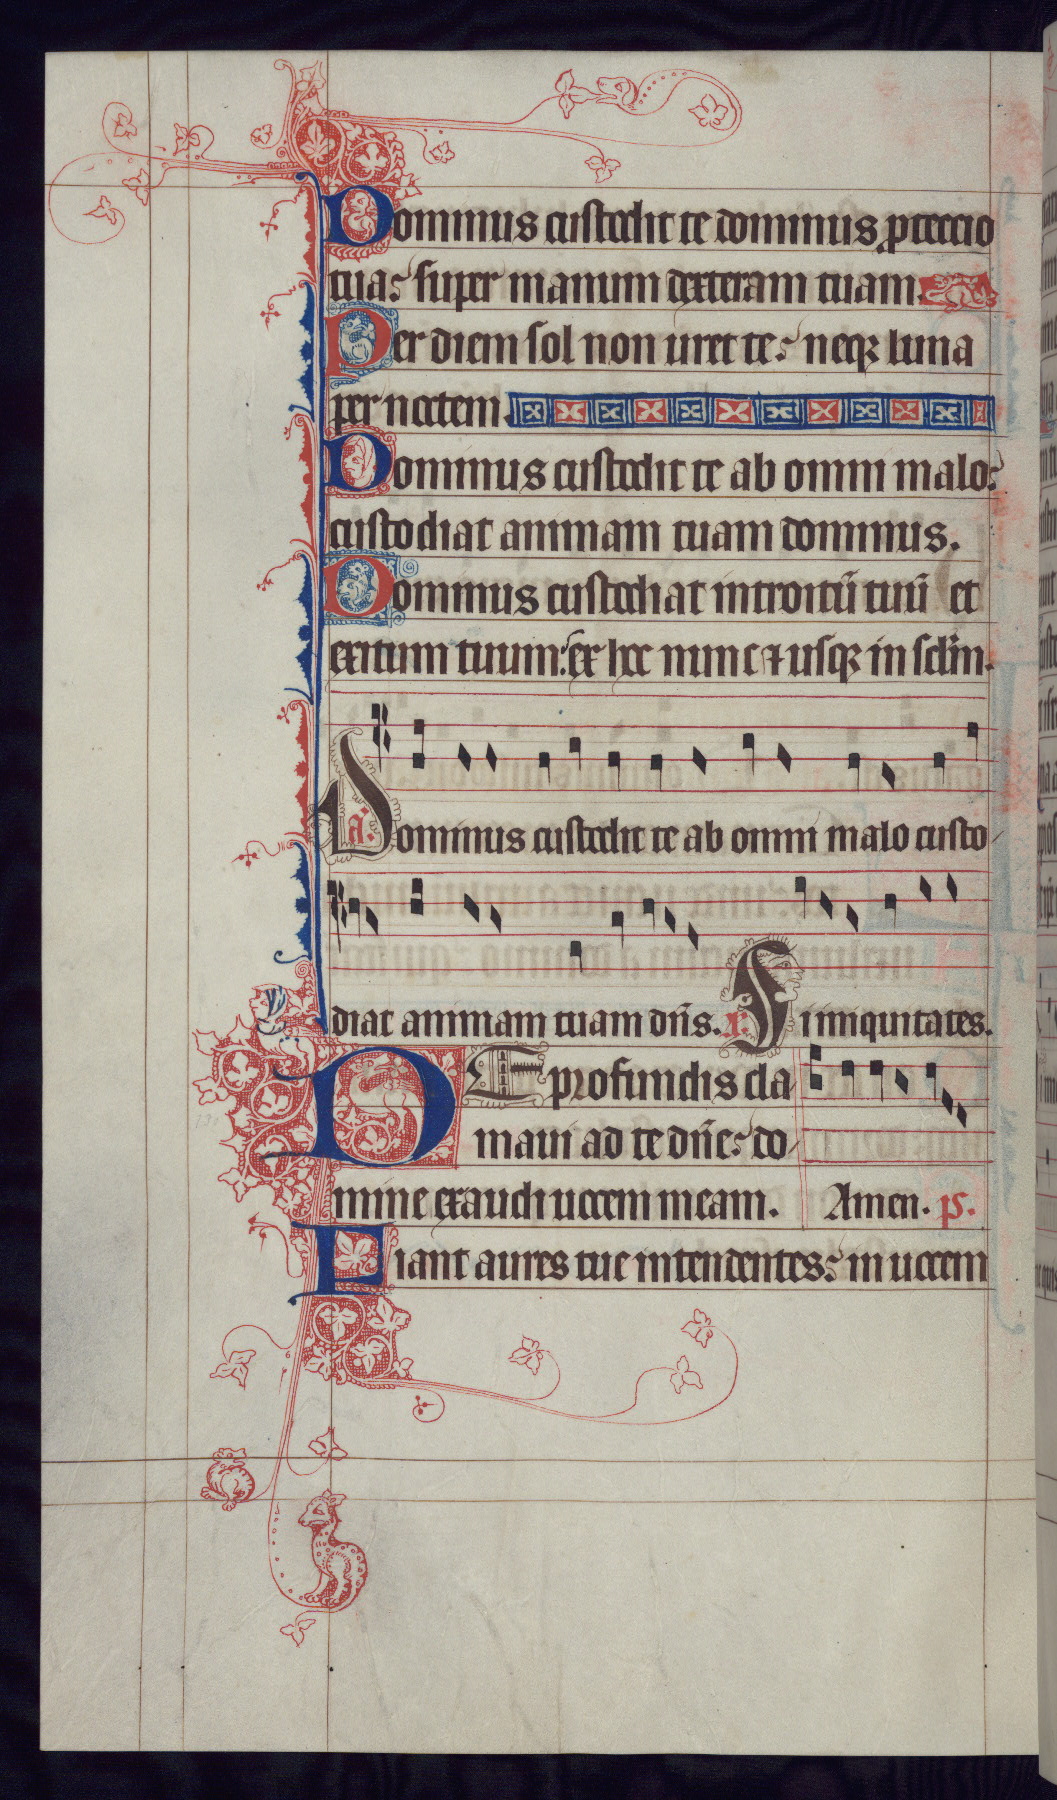 Dominus custodit te dominus proteccio
tua: super manum dexteram tuam.
Per diem sol non uret te: neqꝫ luna
per noctem
Dominus custodit te ab omni malo:
custodiat animam tuam dominus.
Dominus custodiat introitū tuū et
exitum tuum: ex hoc nunc ⁊ usqꝫ in sclm.
a. Dominus custodit te ab omni malo custo
diat animam tuam dn̄s. Si iniquitates.
De profundis cla
maui ad te dn̄e: do
mine exaudi uocem meam. Amen. ps.
Fiant aures tue intendentes: in uocem